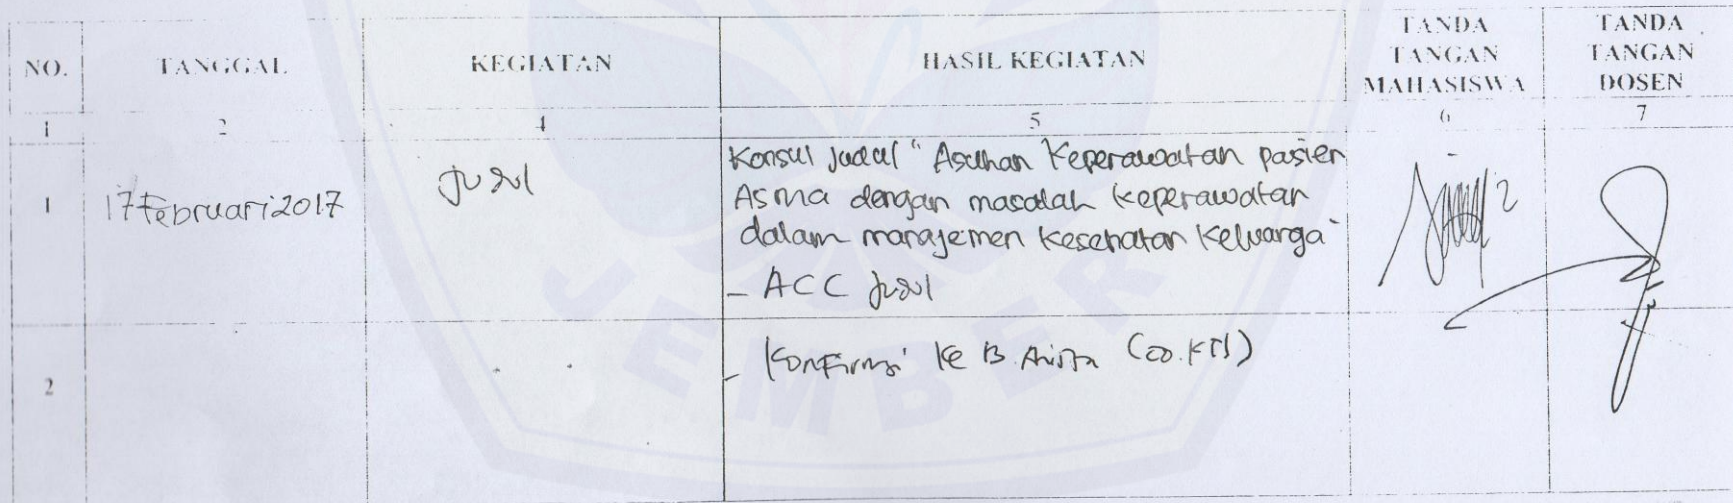 NO. TANGGAL KEGIATAN HASIL KEGIATAN TANDA TANGAN MAHASISWA TANDA TANGAN DOSEN
1 2 4 5 6 7
1 17 Februari 2017 Judul Konsul Judul " Asuhan Keperawatan pasien
Asma dengan masalah keperawatan
dalam manajemen Kesehatan Keluarga"
- ACC Judul
2 - Konfirmasi ke B. (co. KTI)
JEMBER